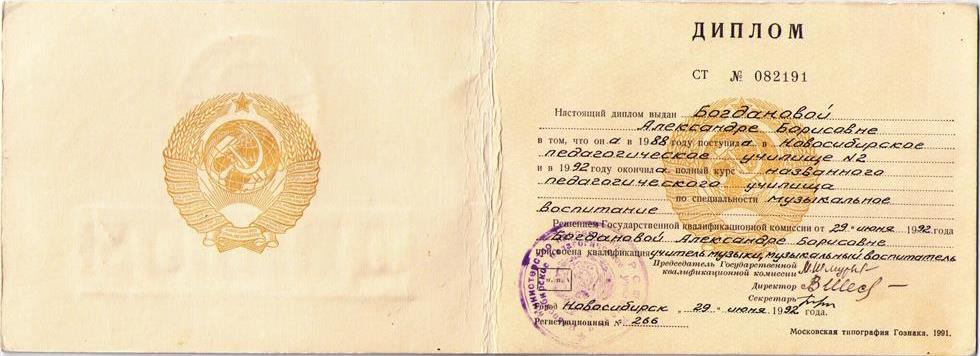 ДИПЛОМ
СТ № 082191
Настоящий диплом выдан Богдановой
Александре Борисовне
в том, что она в 1988 году поступила в Новосибирское
педагогическое училище №2
и в 1992 году окончила полный курс названного
педагогического училища
по специальности музыкальное
воспитание
Решением Государственной квалификационной комиссии от 29 июня 1992 года
Богдановой Александре Борисовне
присвоена квалификация учитель музыки, музыкальный воспитатель
Председатель Государственной
квалификационной комиссии
Директор
Секретарь
Город Новосибирск 29 июня 1992 года.
Регистрационный № 266
Московская типография Гознака. 1991.